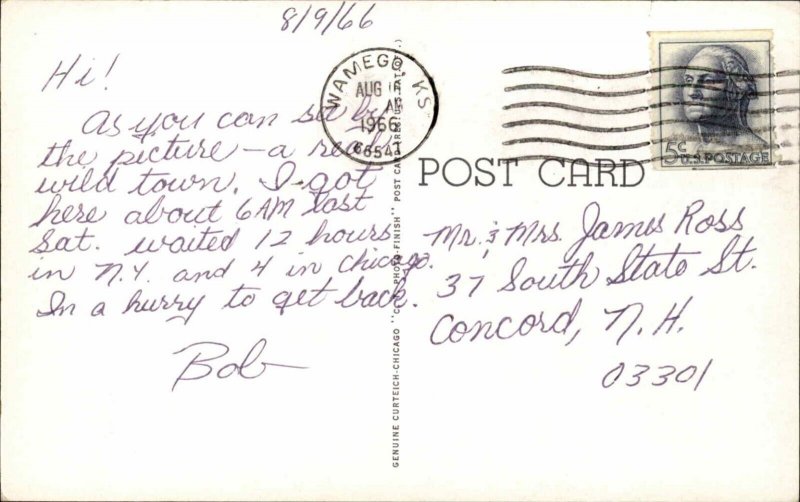 8/9/66
Hi!
As you can see by
the picture - a real
wild town. I got
here about 6AM last
Sat. waited 12 hours
in N.Y. and 4 in Chicago.
In a hurry to get back.
Bob
WAMEGO, KS
AUG
AM
1966
66547
5¢
U.S. POSTAGE
POST CARD
Mr. & Mrs. James Ross
37 South State St.
Concord, N.H.
03301
GENUINE CURTEICH-CHICAGO "C.T. PHOTO-FINISH" POST CARD